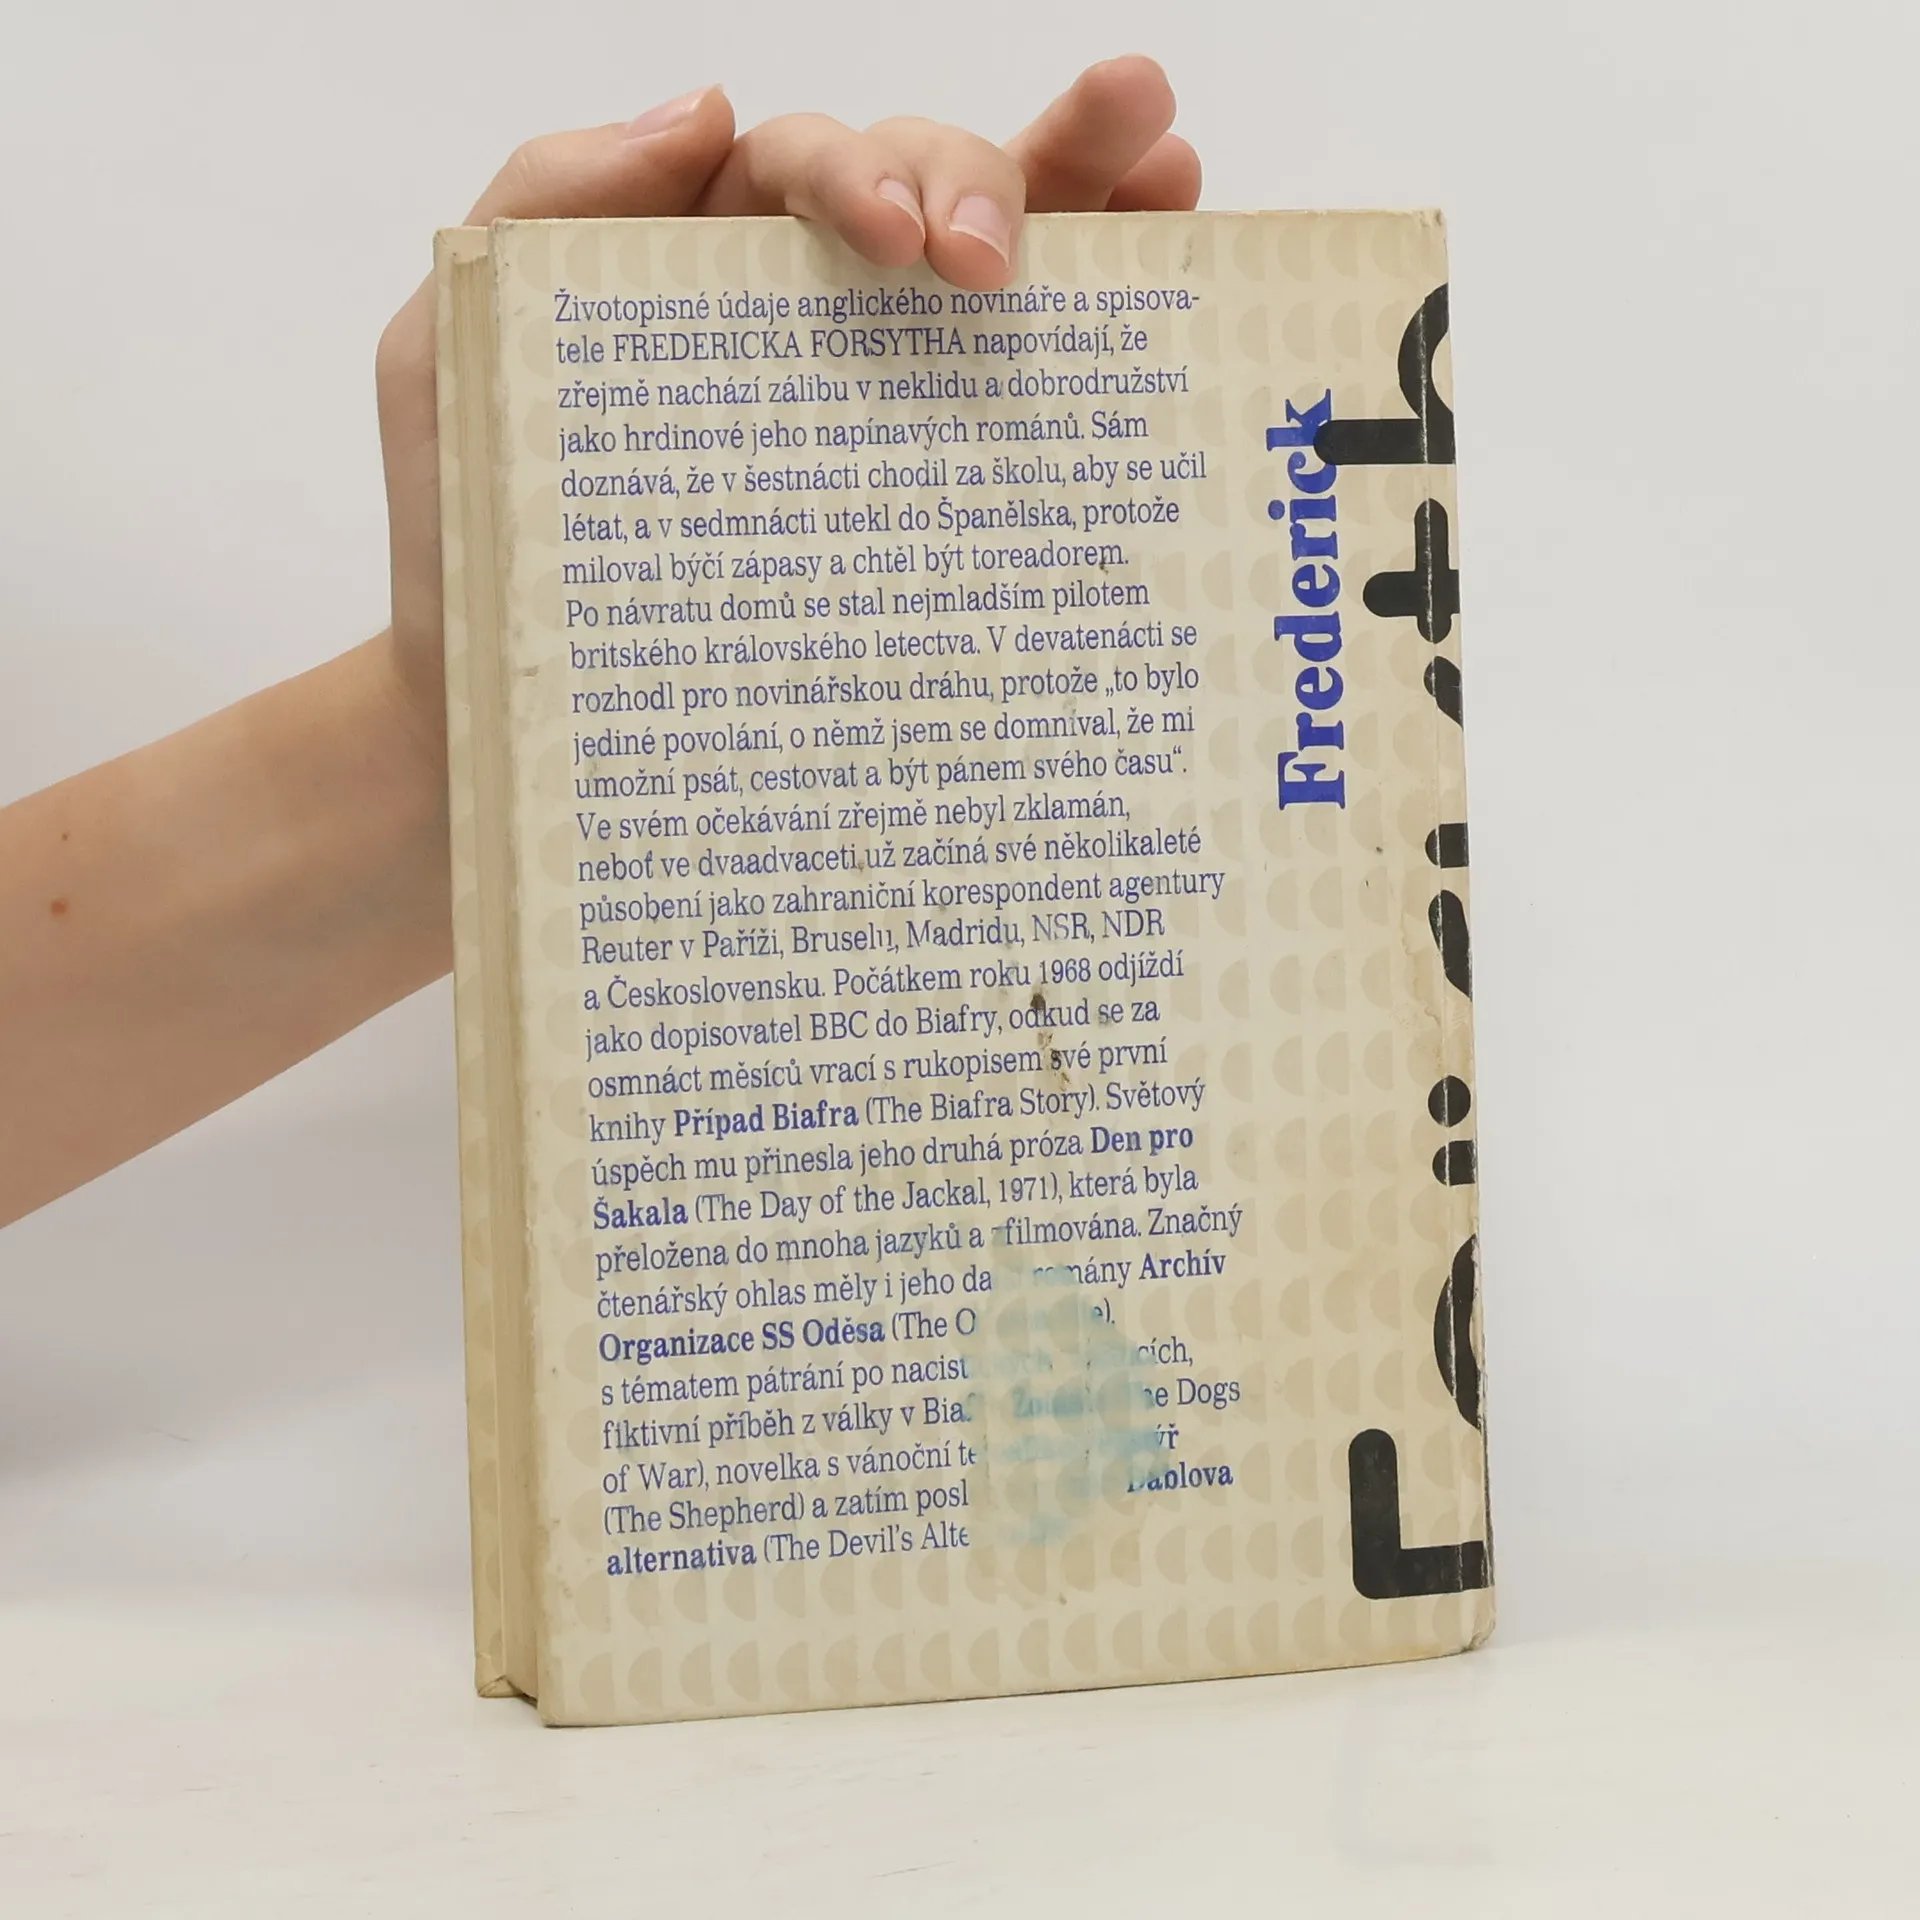 Životopisné údaje anglického novináře a spisova-
tele FREDERICKA FORSYTHA napovídají, že
zřejmě nachází zálibu v neklidu a dobrodružství
jako hrdinové jeho napínavých románů. Sám
doznává, že v šestnácti chodil za školu, aby se učil
létat, a v sedmnácti utekl do Španělska, protože
miloval býčí zápasy a chtěl být toreadorem.
Po návratu domů se stal nejmladším pilotem
britského královského letectva. V devatenácti se
rozhodl pro novinářskou dráhu, protože „to bylo
jediné povolání, o němž jsem se domníval, že mi
umožní psát, cestovat a být pánem svého času“.
Ve svém očekávání zřejmě nebyl zklamán,
neboť ve dvaadvaceti už začíná své několikaleté
působení jako zahraniční korespondent agentury
Reuter v Paříži, Bruselu, Madridu, NSR, NDR
a Československu. Počátkem roku 1968 odjíždí
jako dopisovatel BBC do Biafry, odkud se za
osmnáct měsíců vrací s rukopisem své první
knihy Případ Biafra (The Biafra Story). Světový
úspěch mu přinesla jeho druhá próza Den pro
Šakala (The Day of the Jackal, 1971), která byla
přeložena do mnoha jazyků a zfilmována. Značný
čtenářský ohlas měly i jeho romány Archív
Organizace SS Oděsa (The
s tématem pátrání po
fiktivní příběh z války v The Dogs
of War), novelka s vánoční
(The Shepherd) a zatím Ďáblova
alternativa (The Devil's
Frederick
Forsyth